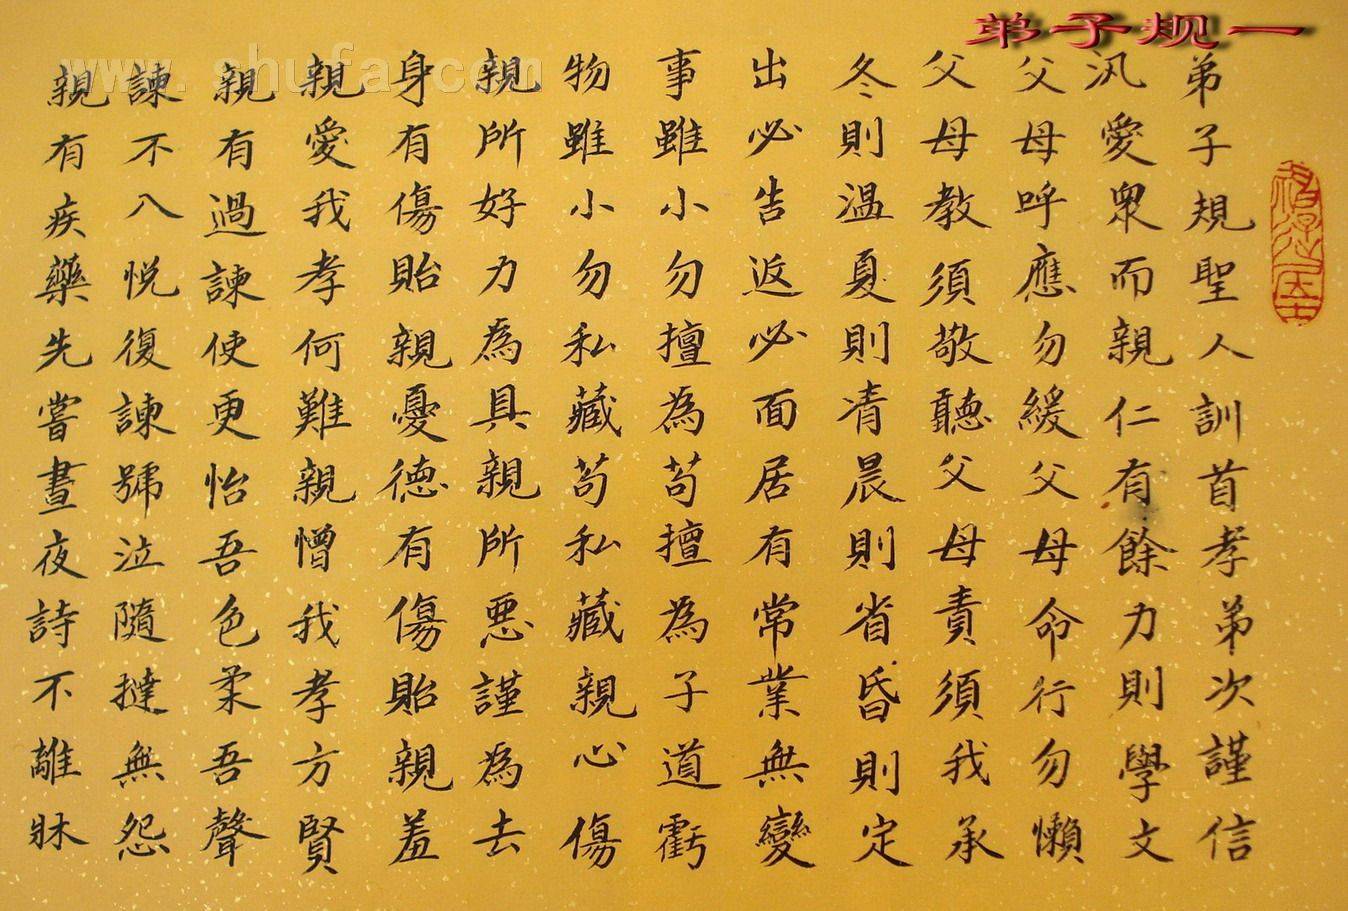 弟子规一
弟子規聖人訓首孝弟次謹信
汎愛衆而親仁有餘力則學文
父母呼應勿緩父母命行勿懶
父母教須敬聽父母責須我承
冬則温夏則凊晨則省昏則定
出必告返必面居有常業無變
事雖小勿擅為苟擅為子道虧
物雖小勿私藏苟私藏親心傷
親所好力為具親所悪謹為去
身有傷貽親憂德有傷貽親羞
親愛我孝何難親憎我孝方賢
親有過諫使更怡吾色柔吾聲
諫不八悦復諫號泣隨撻無怨
親有疾藥先嘗晝夜詩不離牀
www.shufa.com